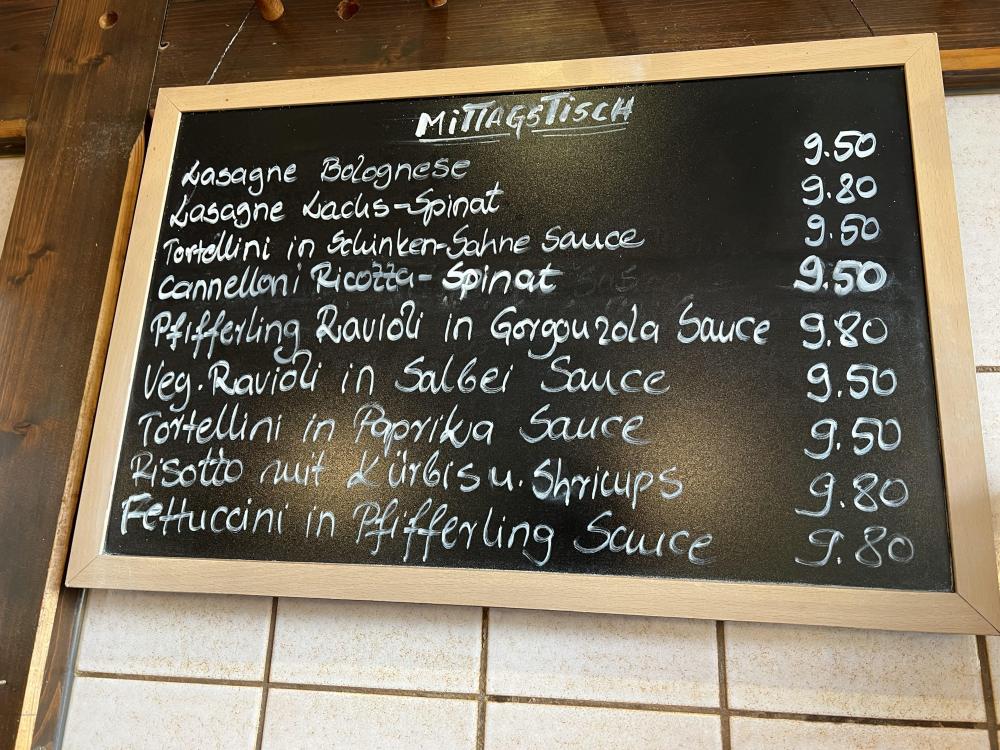 MITTAGSTISCH
Lasagne Bolognese 9.50
Lasagne Lachs-Spinat 9.80
Tortellini in Schinken-Sahne Sauce 9.50
Cannelloni Ricotta-Spinat 9.50
Pfifferling Ravioli in Gorgonzola Sauce 9.80
Veg. Ravioli in Salbei Sauce 9.50
Tortellini in Paprika Sauce 9.50
Risotto mit Kürbis u. Shrimps 9.80
Fettuccini in Pfifferling Sauce 9.80